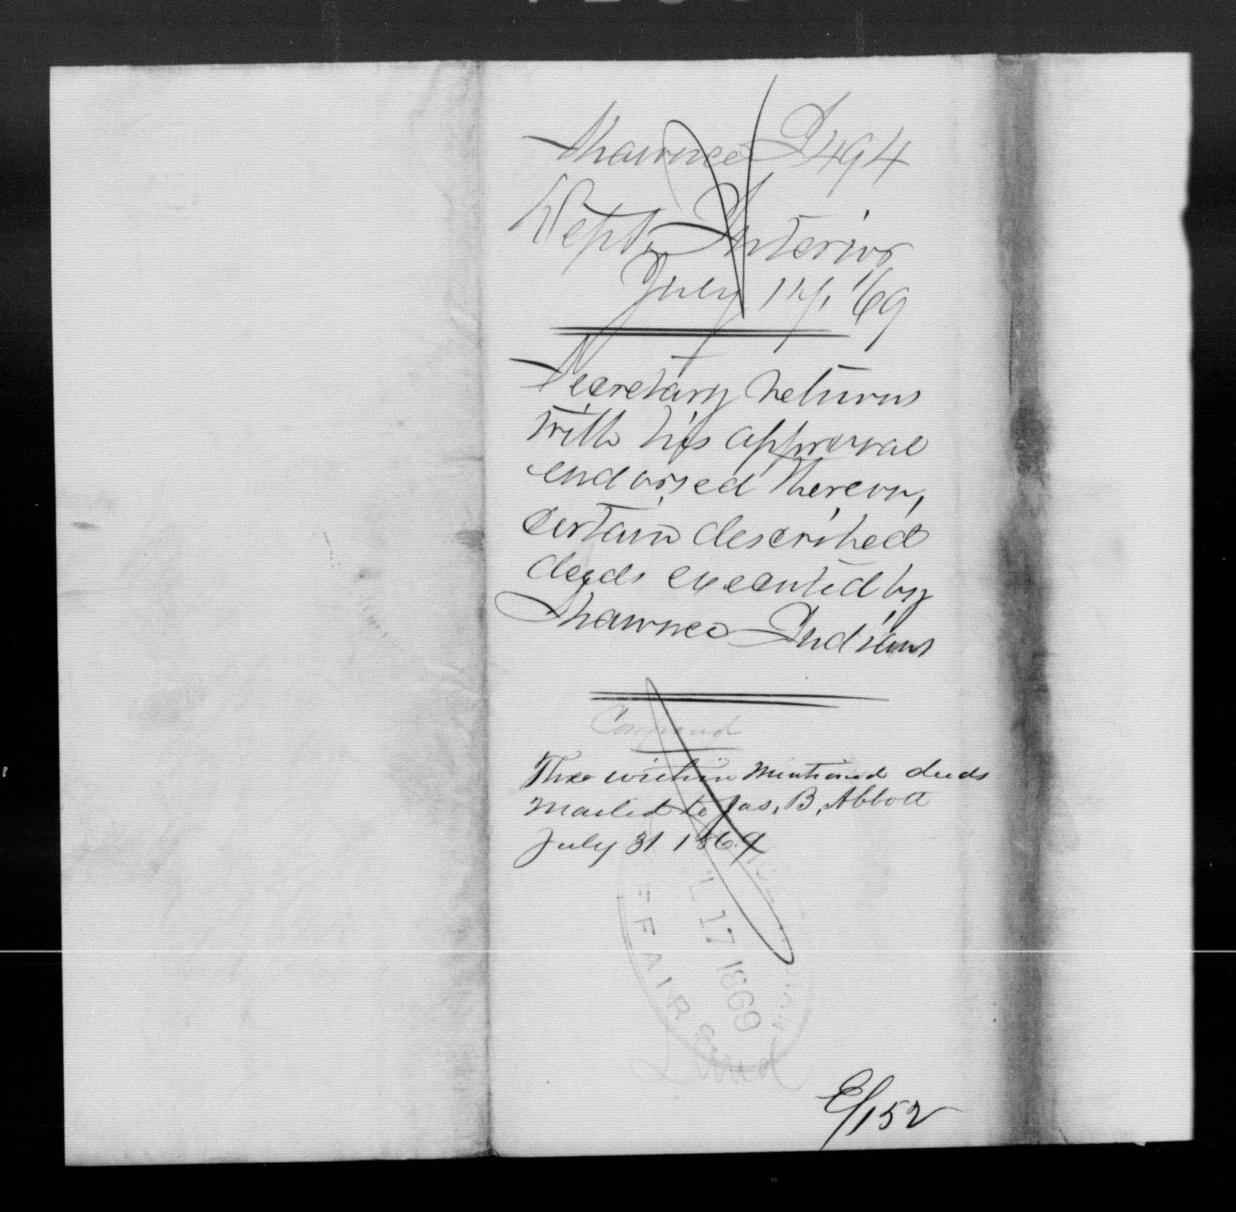 Shawnee I494
Dept. Interior
July 17, '69
Secretary returns
with his approval
endorsed thereon,
certain described
deeds executed by
Shawnee Indians
The within mentioned deeds
Mailed to Jas. B. Abbott
July 31 1869
17 1869
FFAIRS
Land
E/152